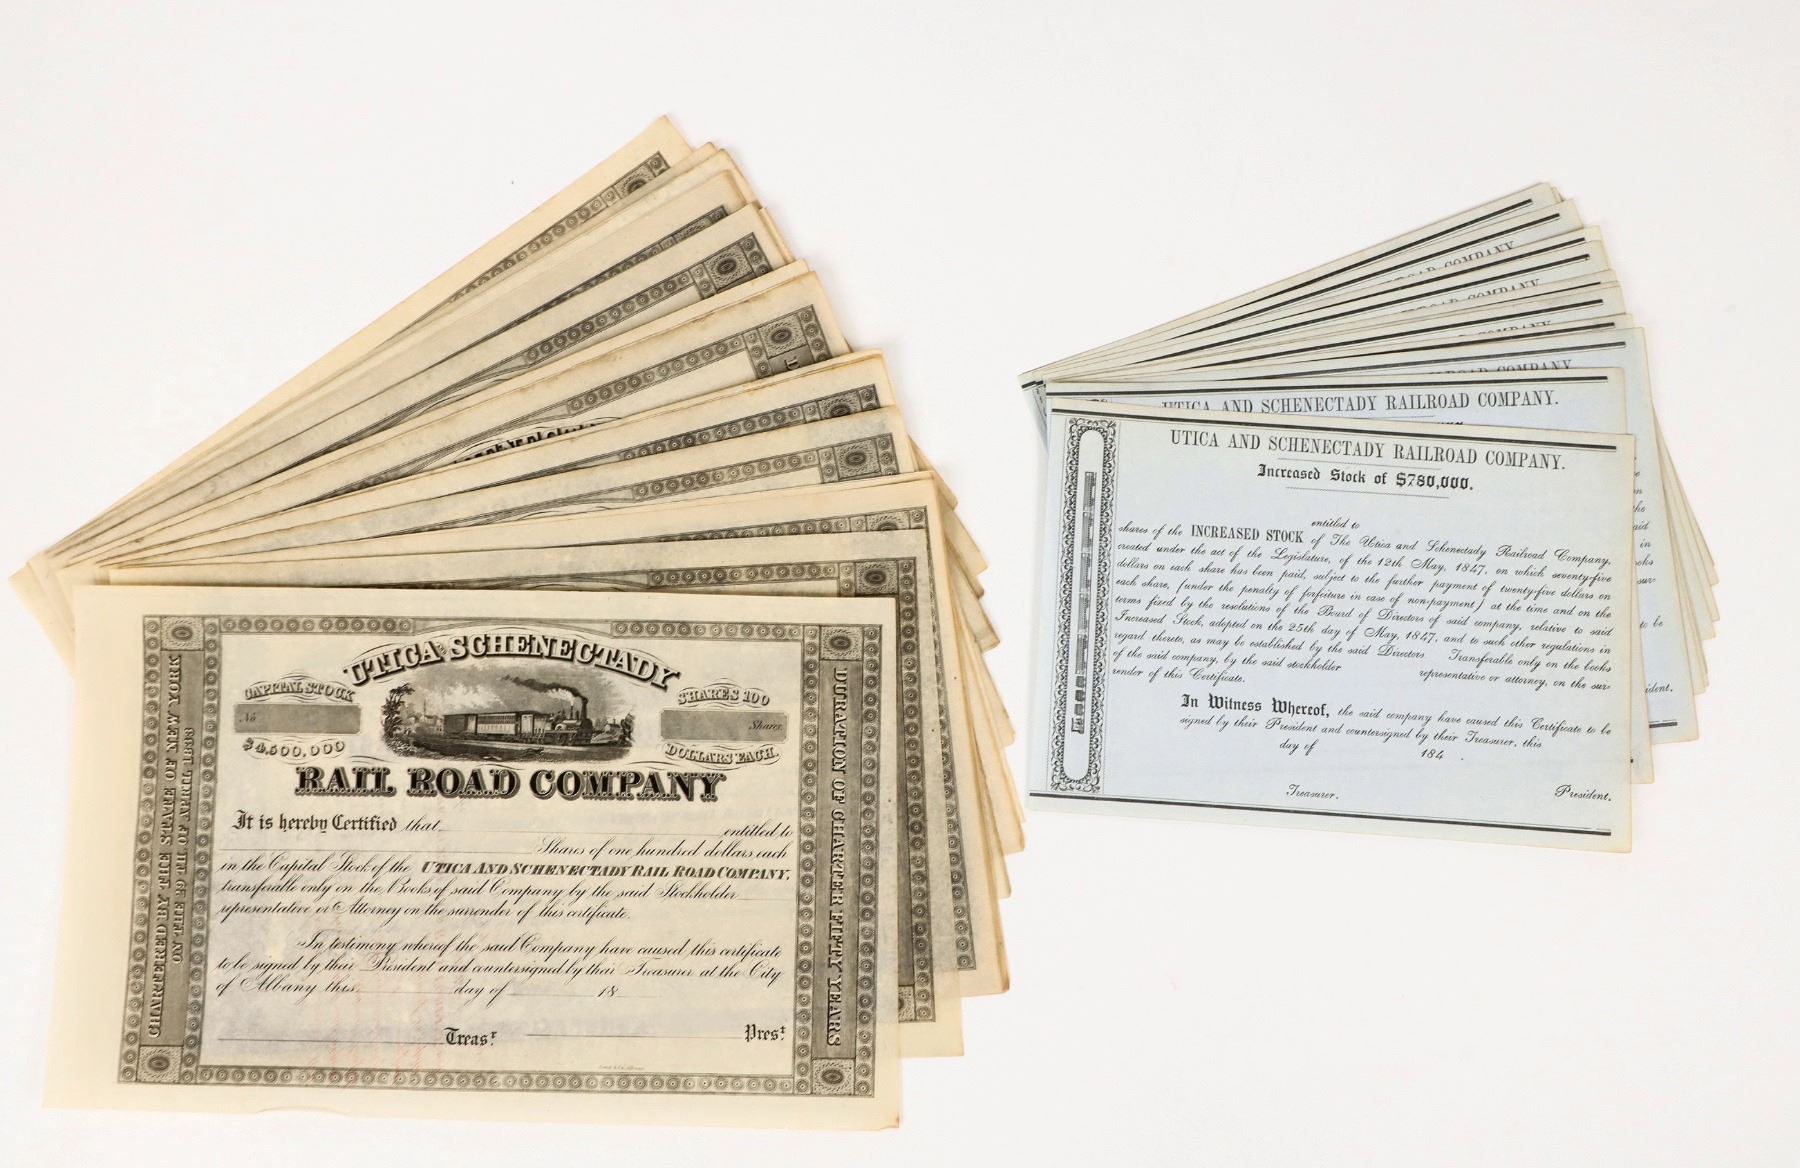 UTICA & SCHENECTADY
CAPITAL STOCK
No
$4,500,000
SHARES 100
Shares.
DOLLARS EACH.
RAIL ROAD COMPANY
CHARTERED BY THE STATE OF NEW YORK
ON THE 29TH OF APRIL 1833
DURATION OF CHARTER FIFTY YEARS
It is hereby Certified that entitled to
Shares of one hundred dollars each
in the Capital Stock of the UTICA AND SCHENECTADY RAIL ROAD COMPANY,
transferable only on the Books of said Company by the said Stockholder
representative or Attorney on the surrender of this certificate.
In testimony whereof the said Company have caused this certificate
to be signed by their President and countersigned by their Treasurer at the City
of Albany this day of 18
Treasr. Prest.
COMPANY
COMPANY
COMPANY
RAILROAD COMPANY
UTICA AND SCHENECTADY RAILROAD COMPANY.
UTICA AND SCHENECTADY RAILROAD COMPANY.
Increased Stock of $780,000.
entitled to
shares of the INCREASED STOCK of The Utica and Schenectady Railroad Company,
created under the act of the Legislature, of the 12th May, 1847, on which seventy-five
dollars on each share has been paid, subject to the further payment of twenty-five dollars on
each share, (under the penalty of forfeiture in case of non-payment) at the time and on the
terms fixed by the resolutions of the Board of Directors of said company, relative to said
Increased Stock, adopted on the 25th day of May, 1847, and to such other regulations in
regard thereto, as may be established by the said Directors. Transferable only on the books
of the said company, by the said stockholder representative or attorney, on the sur-
render of this Certificate.
In Witness Whereof, the said company have caused this Certificate to be
signed by their President and countersigned by their Treasurer, this
day of 184 .
Treasurer. President.